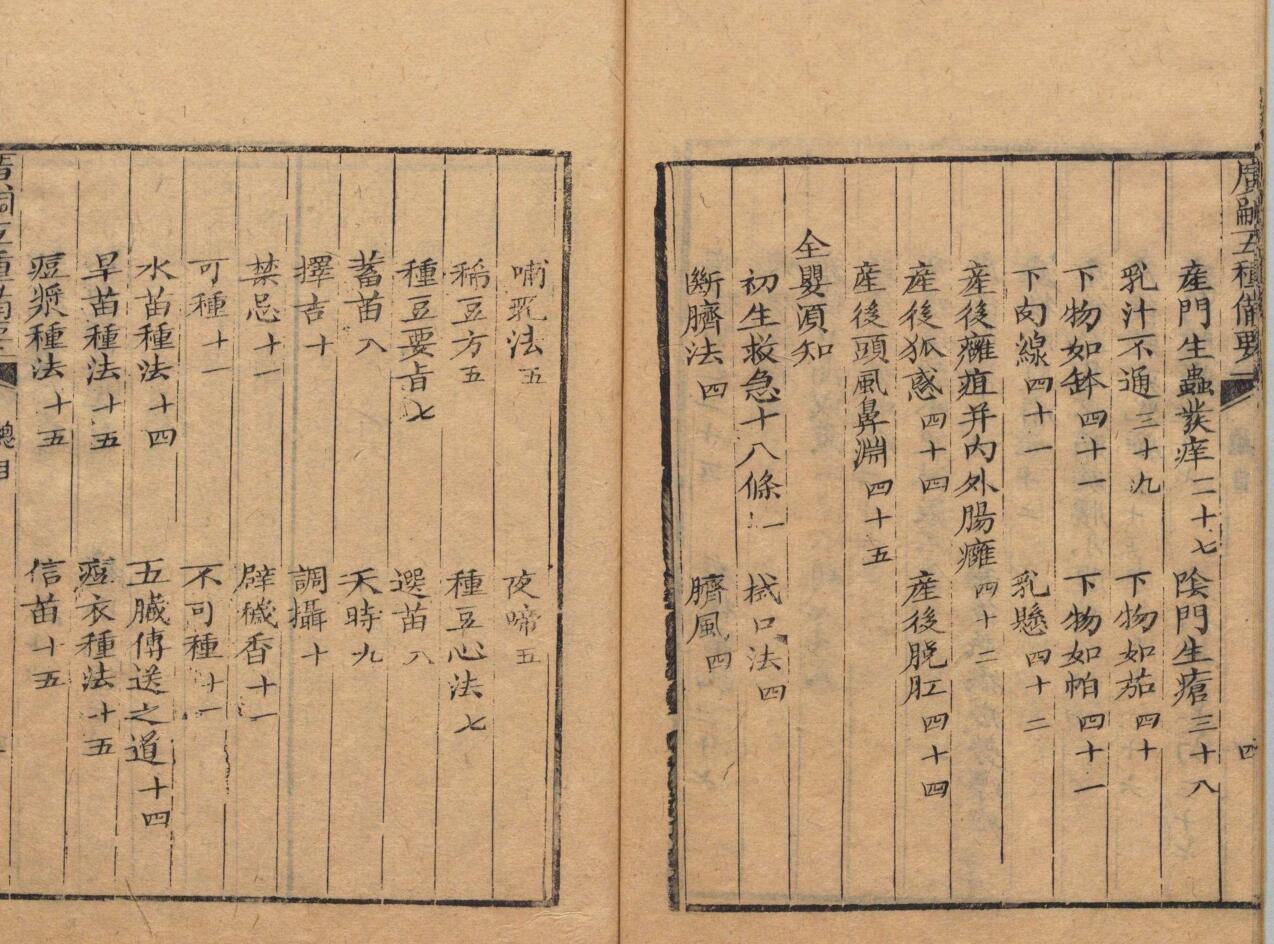 廣嗣五種備要
四
產門生蟲發痒二十七 陰門生瘡三十八
乳汁不通三十九 下物如茄四十
下物如鉢四十一 下物如帕四十一
下肉線四十一 乳懸四十二
產後癰疽并內外腸癰四十二
產後狐惑四十四 產後脫肛四十四
產後頭風鼻淵四十五
全嬰須知
初生救急十八條一 拭口法四
斷臍法四 臍風四
哺乳法五 夜啼五
稀豆方五 種豆心法七
種豆要旨七 選苗八
蓄苗八 天時九
擇吉十 調攝十
禁忌十一 辟穢香十一
可種十一 不可種十一
水苗種法十四 五臟傳送之道十四
旱苗種法十五 痘衣種法十五
痘漿種法十五 信苗十五
總目